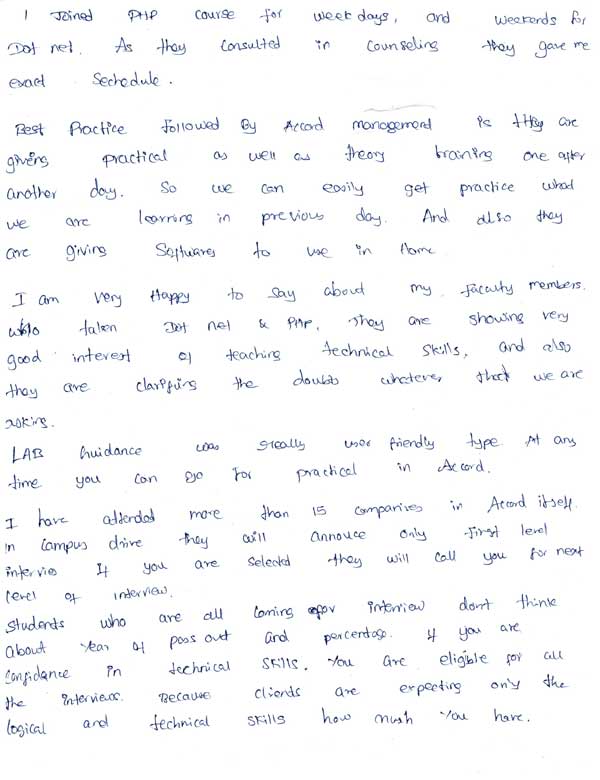 I Joined PHP course for weekdays, and weekends for
Dot net. As they consulted in counseling they gave me
exact Sechedule.
Best Practice followed By Accord management is they are
giving practical as well as theory training one after
another day. So we can easily get practice what
we are learning in previous day. And also they
are giving Softwares to use in Home
I am very Happy to say about my faculty members.
who taken Dot net & PHP, They are showing very
good interest of teaching technical skills, and also
they are clarifing the doubts whatever, that we are
asking.
LAB Guidance was really user friendly type At any
time you can go for practical in Accord.
I have attended more than 15 companines in Accord itself.
In campus drive they will annouce only first level
intervie If you are selected they will call you for next
level of interview.
Students who are all coming for interview don't think
about Year of pass out and percentage. If you are
confidance in technical skills. You are eligible for all
the interviews. Because clients are expecting only the
logical and technical skills how mush You have.